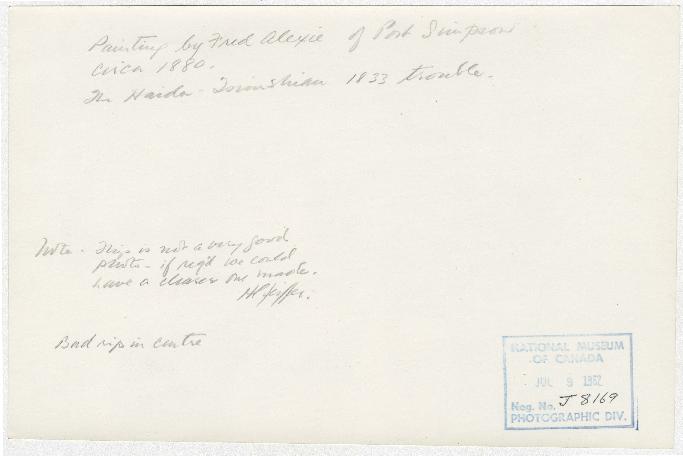 Painting by Fred Alexie of Port Simpson
circa 1880.
The Haida - Tsimshian 1833 trouble.
Note - This is not a very good
photo - if req'd we could
have a clearer one made.
Bad rip in centre
NATIONAL MUSEUM
OF CANADA
JUL 9 1962
Neg. No. J 8169
PHOTOGRAPHIC DIV.